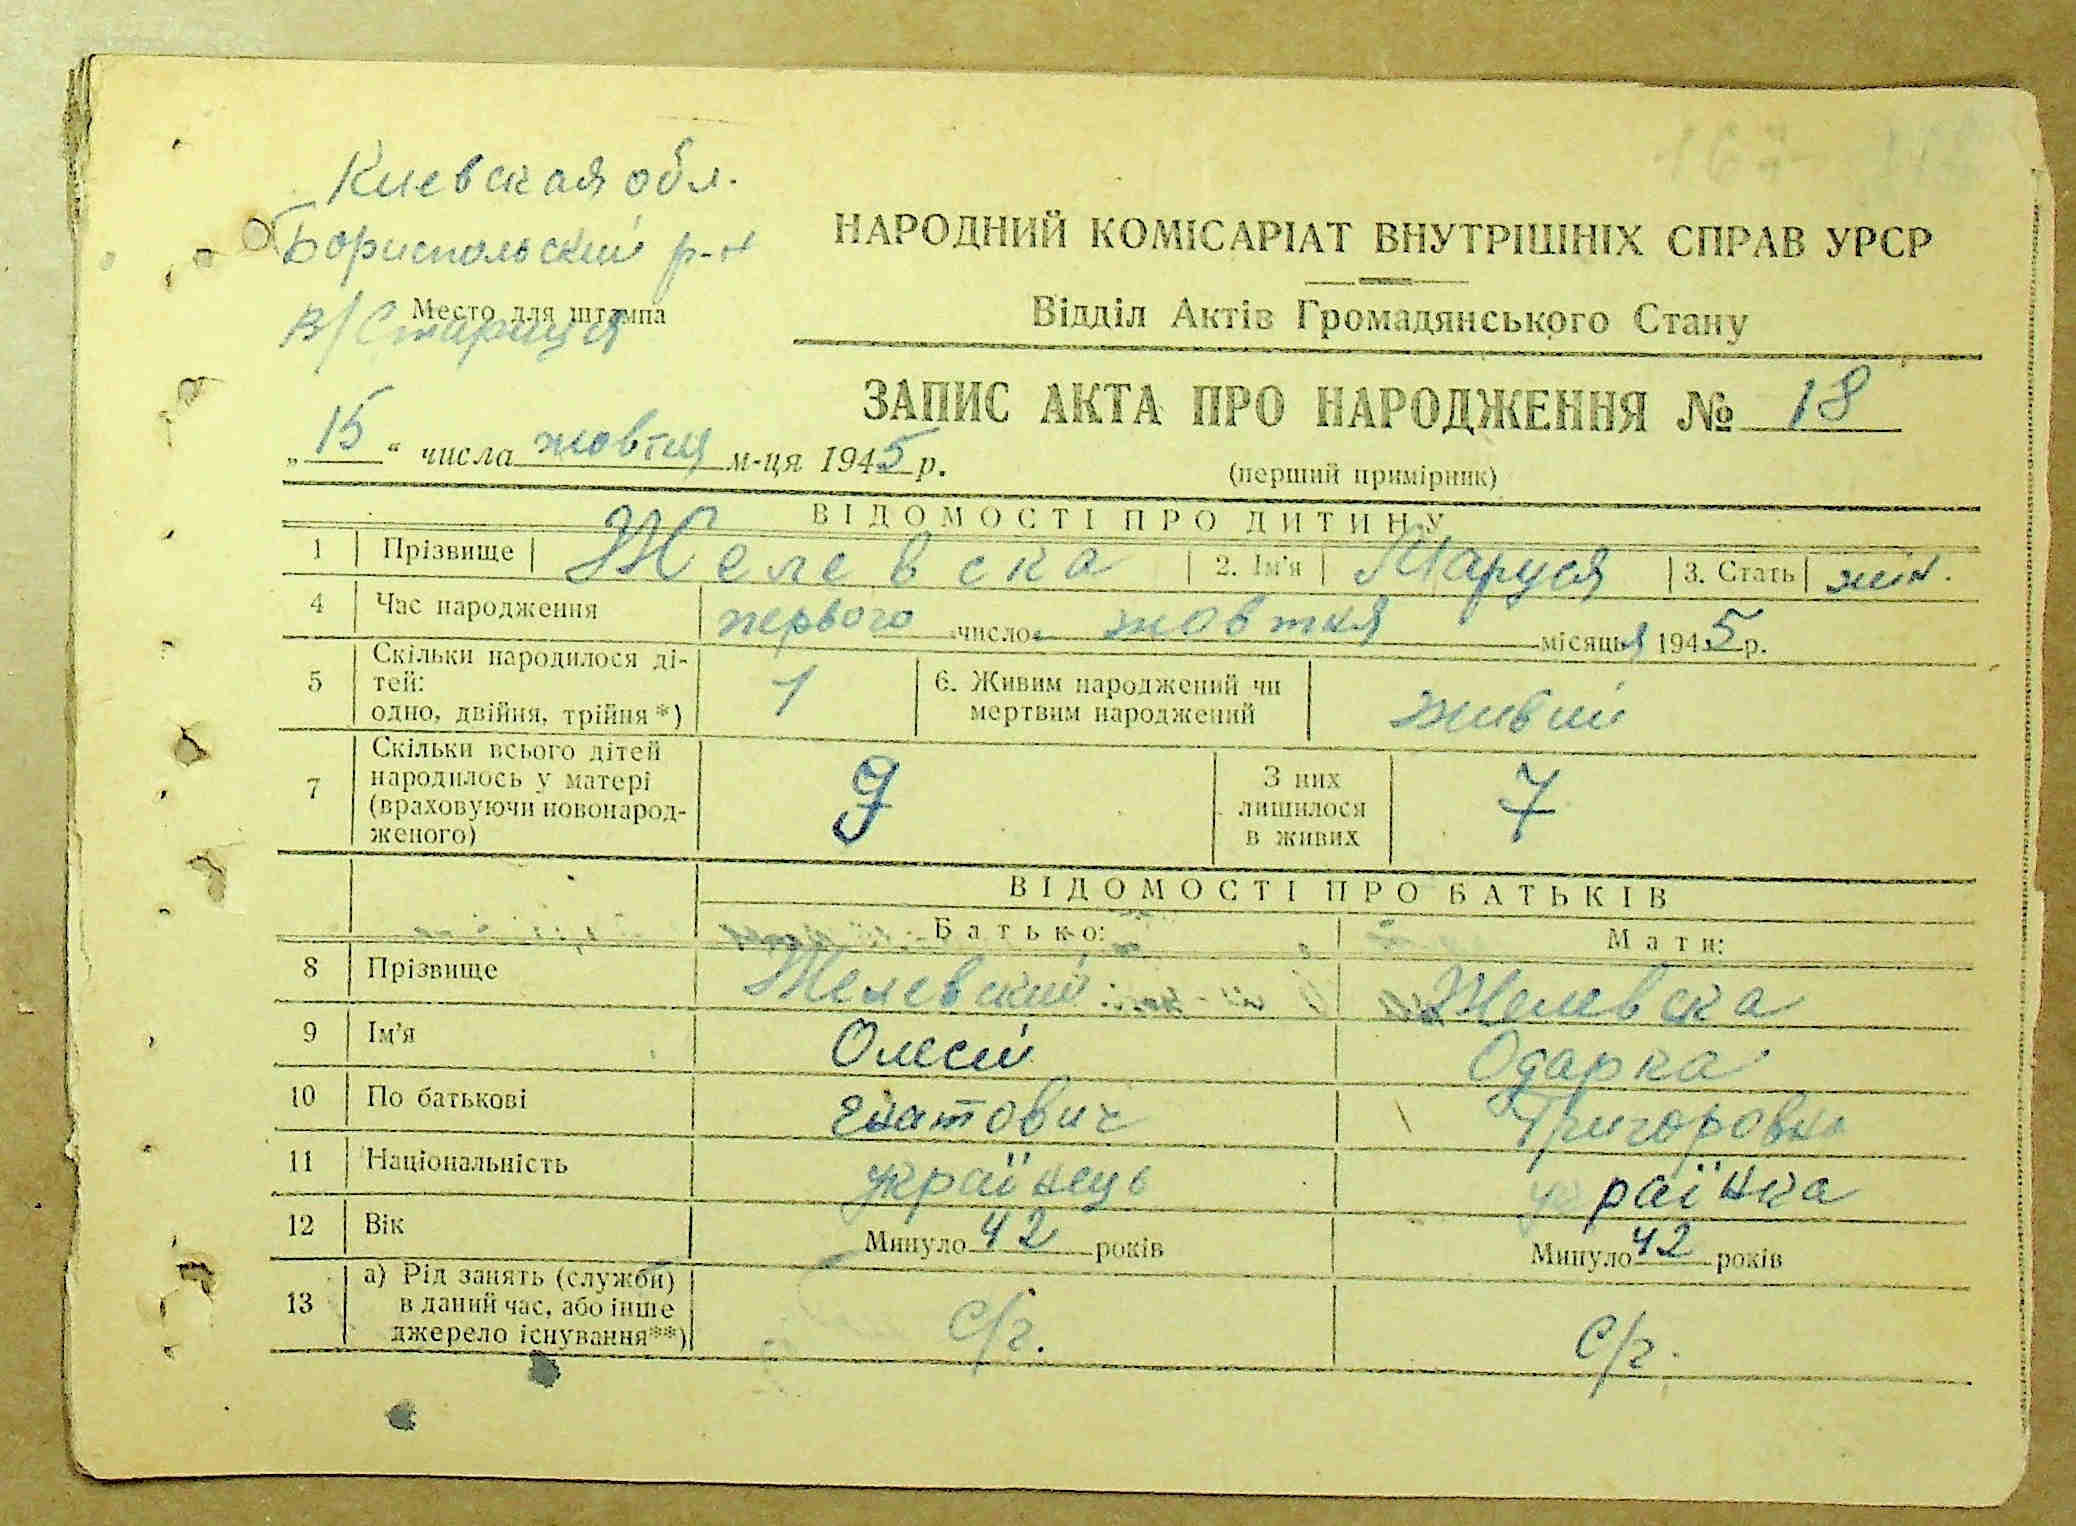 Киевская обл.
Бориспольский р-н
Место для штампа
в/Старица
НАРОДНИЙ КОМІСАРІАТ ВНУТРІШНІХ СПРАВ УРСР
Відділ Актів Громадянського Стану
ЗАПИС АКТА ПРО НАРОДЖЕННЯ № 18
„15“ числа жовтня м-ця 1945 р.
(перший примірник)
ВІДОМОСТІ ПРО ДИТИНУ
1 Прізвище Желевска 2. Ім'я Маруся 3. Стать жін.
4 Час народження первого число жовтня місяця 1945 р.
5 Скільки народилося ді-
тей:
одно, двійня, трійня*) 1 6. Живим народжений чи
мертвим народжений живий
7 Скільки всього дітей
народилось у матері
(враховуючи новонарод-
женого) 9 З них
лишилося
в живих 7
ВІДОМОСТІ ПРО БАТЬКІВ
Батько: Мати:
8 Прізвище Желевский Желевска
9 Ім'я Олесій Одарка
10 По батькові Єнатович Григоровна
11 Національність українець українка
12 Вік Минуло 42 років Минуло 42 років
13 а) Рід занять (служби)
в даний час, або інше
джерело існування**) с/г. с/г.